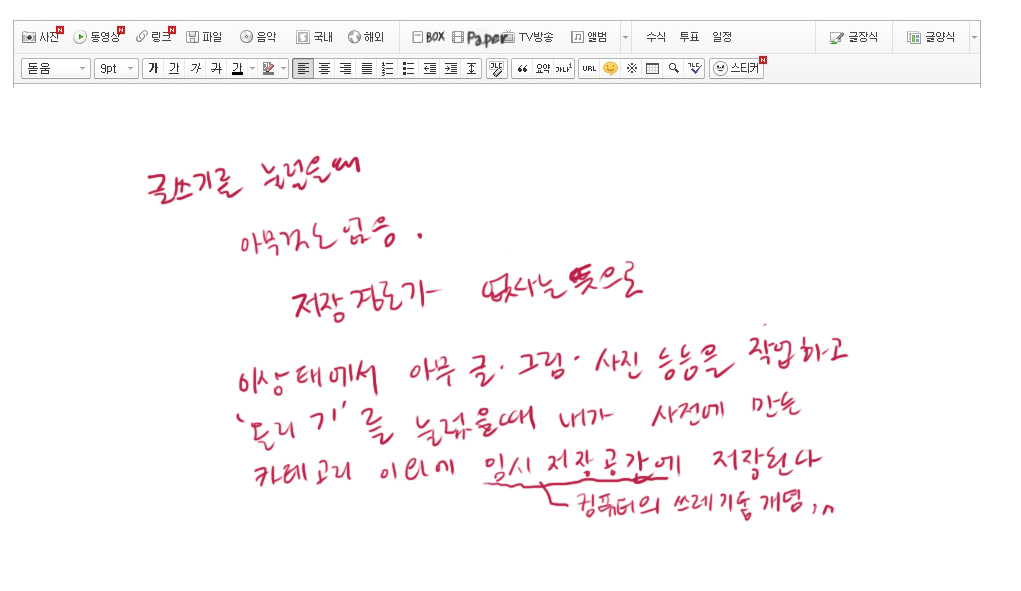 사진 동영상 링크 파일 음악 국내 해외 BOX Paper TV방송 앨범 수식 투표 일정 글장식 글양식
돋움 9pt 가 가 가 가 가 가 “ 요약 가나1 URL ※ 스티커
글쓰기를 눌렀을때
아무것도 없음.
저장경로가 없다는 뜻으로
이상태에서 아무 글·그림·사진 등등을 작업하고
'올리기'를 눌렀을때 내가 사전에 만든
카테고리 이외에 임시 저장공간에 저장된다
컴퓨터의 쓰레기통개념,n